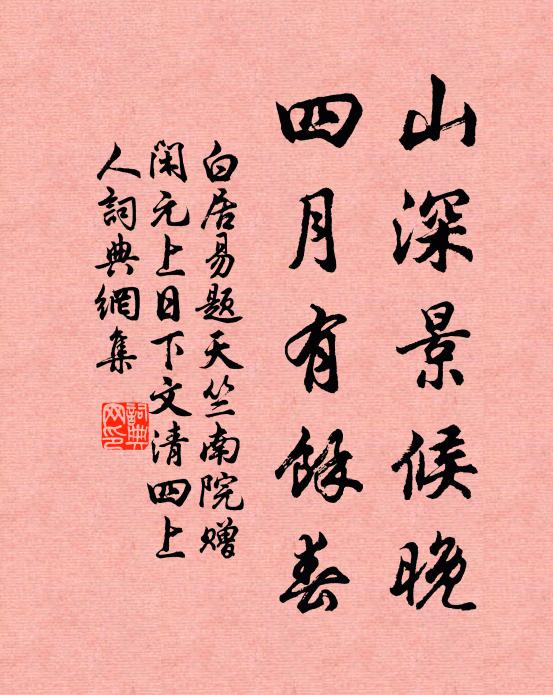 山深景候晚
四月有餘春
白居易题天竺南院赠
闲元上日下文清四上
人詞典網集
詞典网印